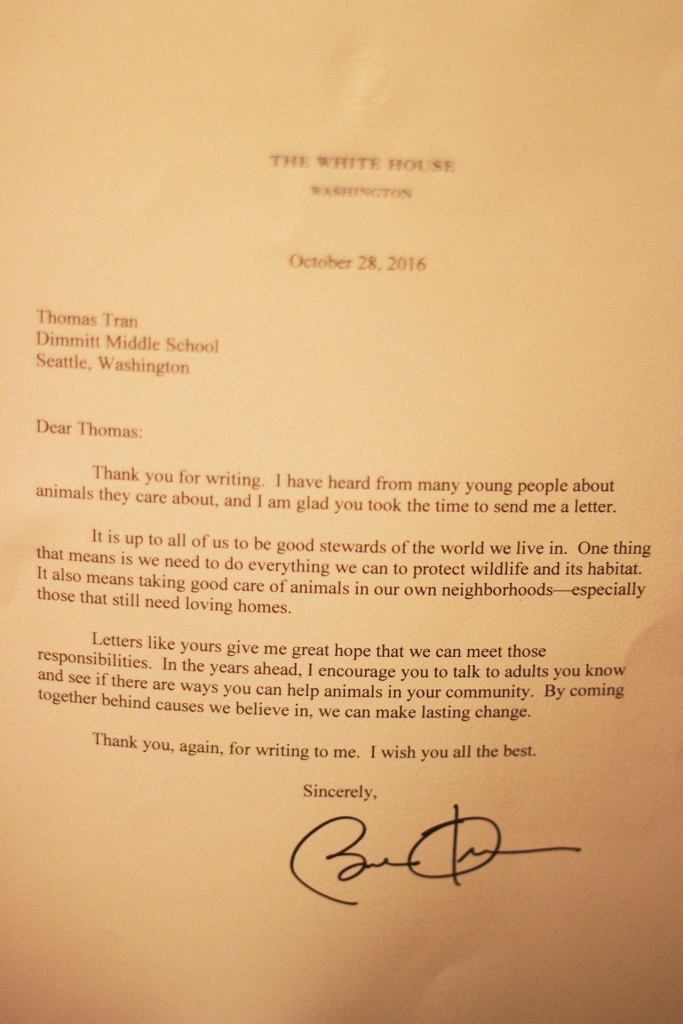 THE WHITE HOUSE
WASHINGTON
October 28, 2016
Thomas Tran
Dimmitt Middle School
Seattle, Washington
Dear Thomas:
Thank you for writing.  I have heard from many young people about
animals they care about, and I am glad you took the time to send me a letter.
It is up to all of us to be good stewards of the world we live in.  One thing
that means is we need to do everything we can to protect wildlife and its habitat.
It also means taking good care of animals in our own neighborhoods—especially
those that still need loving homes.
Letters like yours give me great hope that we can meet those
responsibilities.  In the years ahead, I encourage you to talk to adults you know
and see if there are ways you can help animals in your community.  By coming
together behind causes we believe in, we can make lasting change.
Thank you, again, for writing to me.  I wish you all the best.
Sincerely,